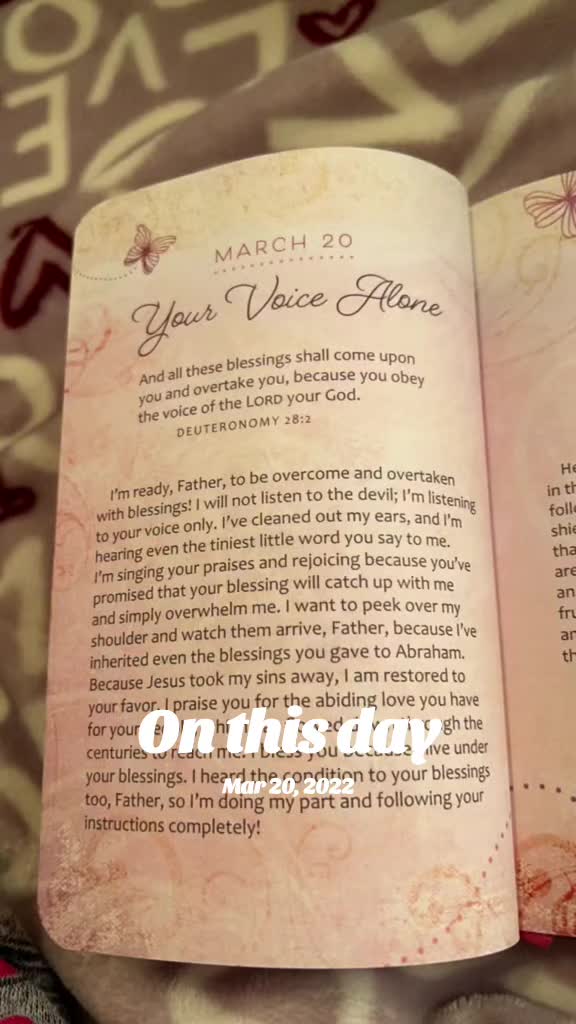 MARCH 20
Your Voice Alone
And all these blessings shall come upon
you and overtake you, because you obey
the voice of the LORD your God.
DEUTERONOMY 28:2
I'm ready, Father, to be overcome and overtaken
with blessings! I will not listen to the devil; I'm listening
to your voice only. I've cleaned out my ears, and I'm
hearing even the tiniest little word you say to me.
I'm singing your praises and rejoicing because you've
promised that your blessing will catch up with me
and simply overwhelm me. I want to peek over my
shoulder and watch them arrive, Father, because I've
inherited even the blessings you gave to Abraham.
Because Jesus took my sins away, I am restored to
your favor. I praise you for the abiding love you have
for your the
centuries to reach me. I bless you because I live under
your blessings. I heard the condition to your blessings
too, Father, so I'm doing my part and following your
instructions completely!
On this day
Mar 20, 2022
He
in th
foll
shie
tha
are
an
fru
an
th